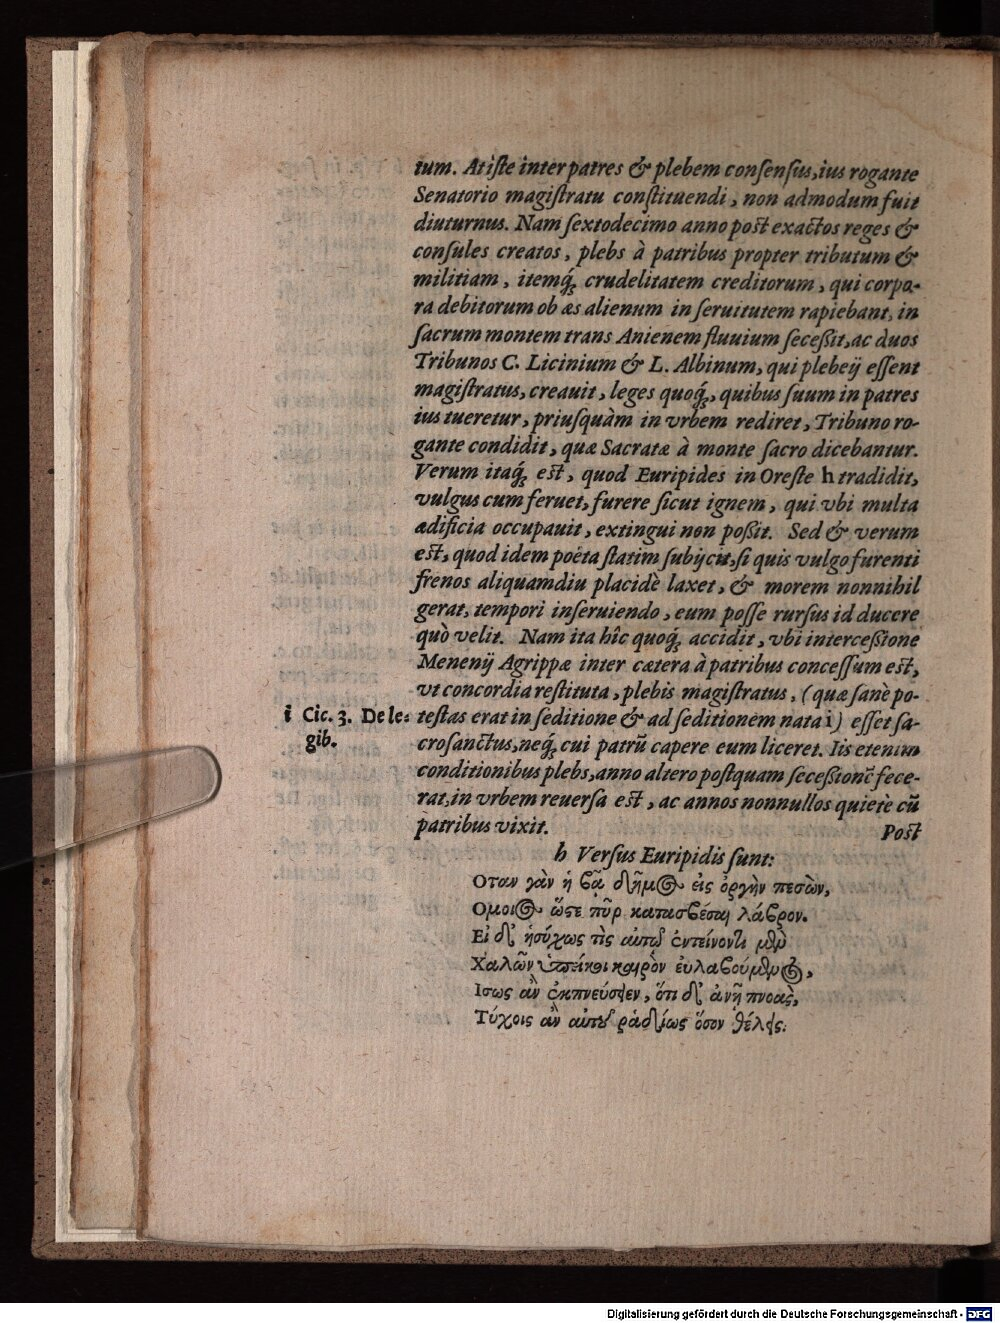 tum. At iste inter patres & plebem consensus, ius rogante
Senatorio magistratu constituendi, non admodum fuit
diuturnus. Nam sextodecimo anno post exactos reges &
consules creatos, plebs à patribus propter tributum &
militiam, itemq́ꝫ crudelitatem creditorum, qui corpo-
ra debitorum ob æs alienum in seruitutem rapiebant, in
sacrum montem trans Anienem fluuium secessit, ac duos
Tribunos C. Licinium & L. Albinum, qui plebeij essent
magistratus, creauit, leges quoq́ꝫ, quibus suum in patres
ius tueretur, priusquàm in vrbem rediret, Tribuno ro-
gante condidit, quæ Sacratæ à monte sacro dicebantur.
Verum itaq́ꝫ est, quod Euripides in Oreste h tradidit,
vulgus cum feruet, furere sicut ignem, qui vbi multa
ædificia occupauit, extingui non possit. Sed & verum
est, quod idem poëta statim subijcit, si quis vulgo furenti
frenos aliquamdiu placidè laxet, & morem nonnihil
gerat, tempori inseruiendo, eum posse rursus id ducere
quò velit. Nam ita hîc quoq́ꝫ accidit, vbi intercessione
Menenij Agrippæ inter cætera à patribus concessum est,
vt concordia restituta, plebis magistratus, (quæ sanè po-
i Cic. 3. De le- testas erat in seditione & ad seditionem nata i) esset sa-
gib. crosanctus, neq́ꝫ cui patrũ capere eum liceret. Iis etenim
conditionibus plebs, anno altero postquam secessionẽ fece-
rat, in vrbem reuersa est, ac annos nonnullos quietè cũ
patribus vixit. Post
h Versus Euripidis sunt:
Οταν γὰν ἡ βᾷ δῆμος εἰς ὀργὴν πεσὼν,
Ομοιος ὥςε πῦρ κατασβέσαι λάβρον.
Εἰ δ' ἡσύχως τὶς αὐτῷ ἐντείνοντι μὲν
Χαλῶν ὑπείκοι καιρὸν εὐλαβούμενος,
Ισως ἂν ἐκπνεύσειεν, ὅτι δ' ἀνῇ πνοὰς,
Τύχοις ἂν αὐτοῦ ῥᾳδίως ὅσον θέλεις.
Digitalisierung gefördert durch die Deutsche Forschungsgemeinschaft - DFG